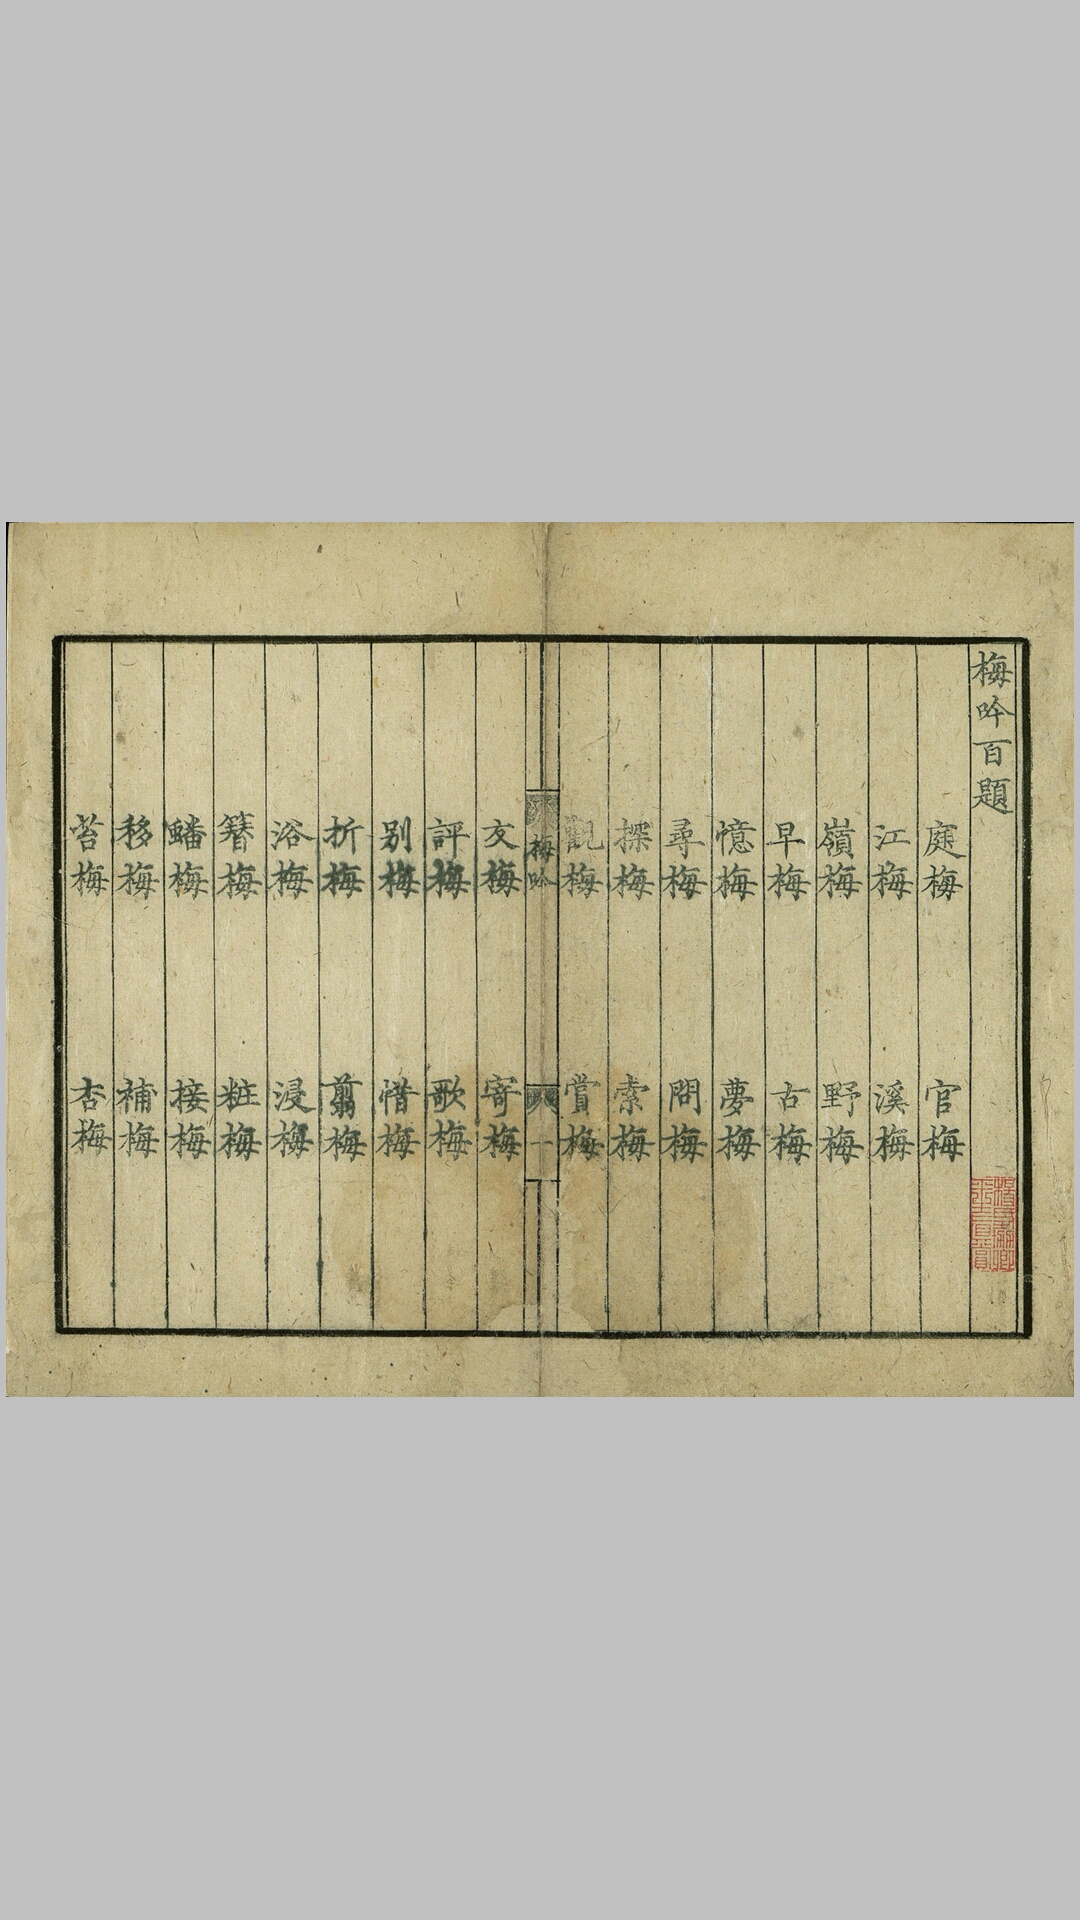 梅吟百題
庭梅 官梅
江梅 溪梅
嶺梅 野梅
早梅 古梅
憶梅 夢梅
尋梅 問梅
探梅 索梅
觀梅 賞梅
梅吟 一
友梅 寄梅
評梅 歌梅
別梅 惜梅
折梅 翦梅
浴梅 浸梅
簪梅 粧梅
蟠梅 接梅
移梅 補梅
苔梅 杏梅